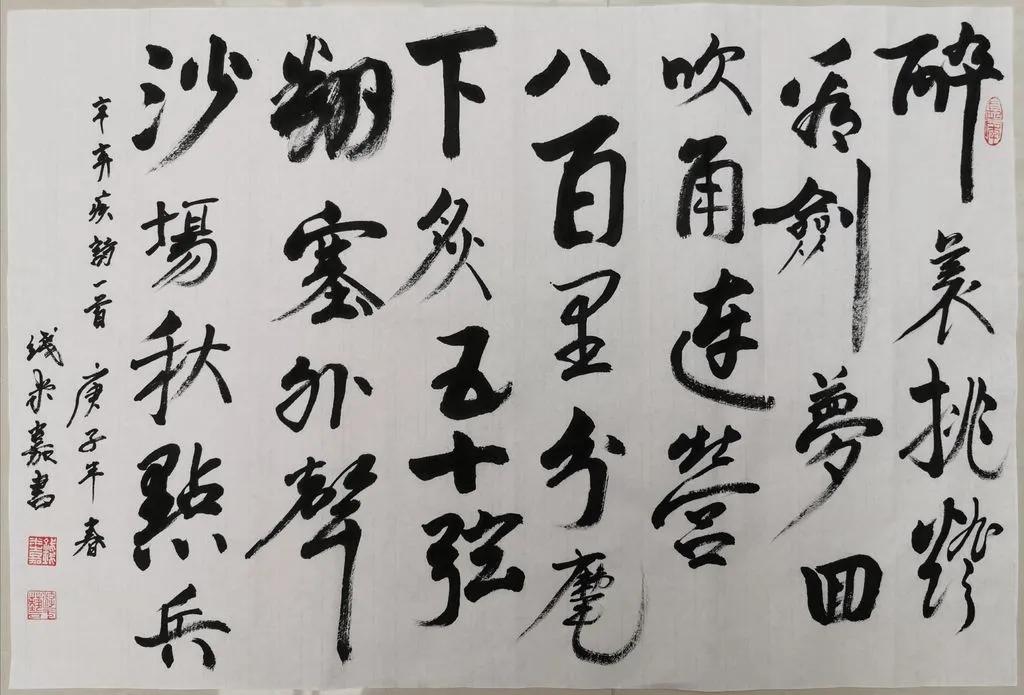 醉裏挑燈
看劍夢回
吹角連營
八百里分麾
下炙五十弦
翻塞外聲
沙場秋點兵
辛弃疾詩一首 庚子年春
嘉書